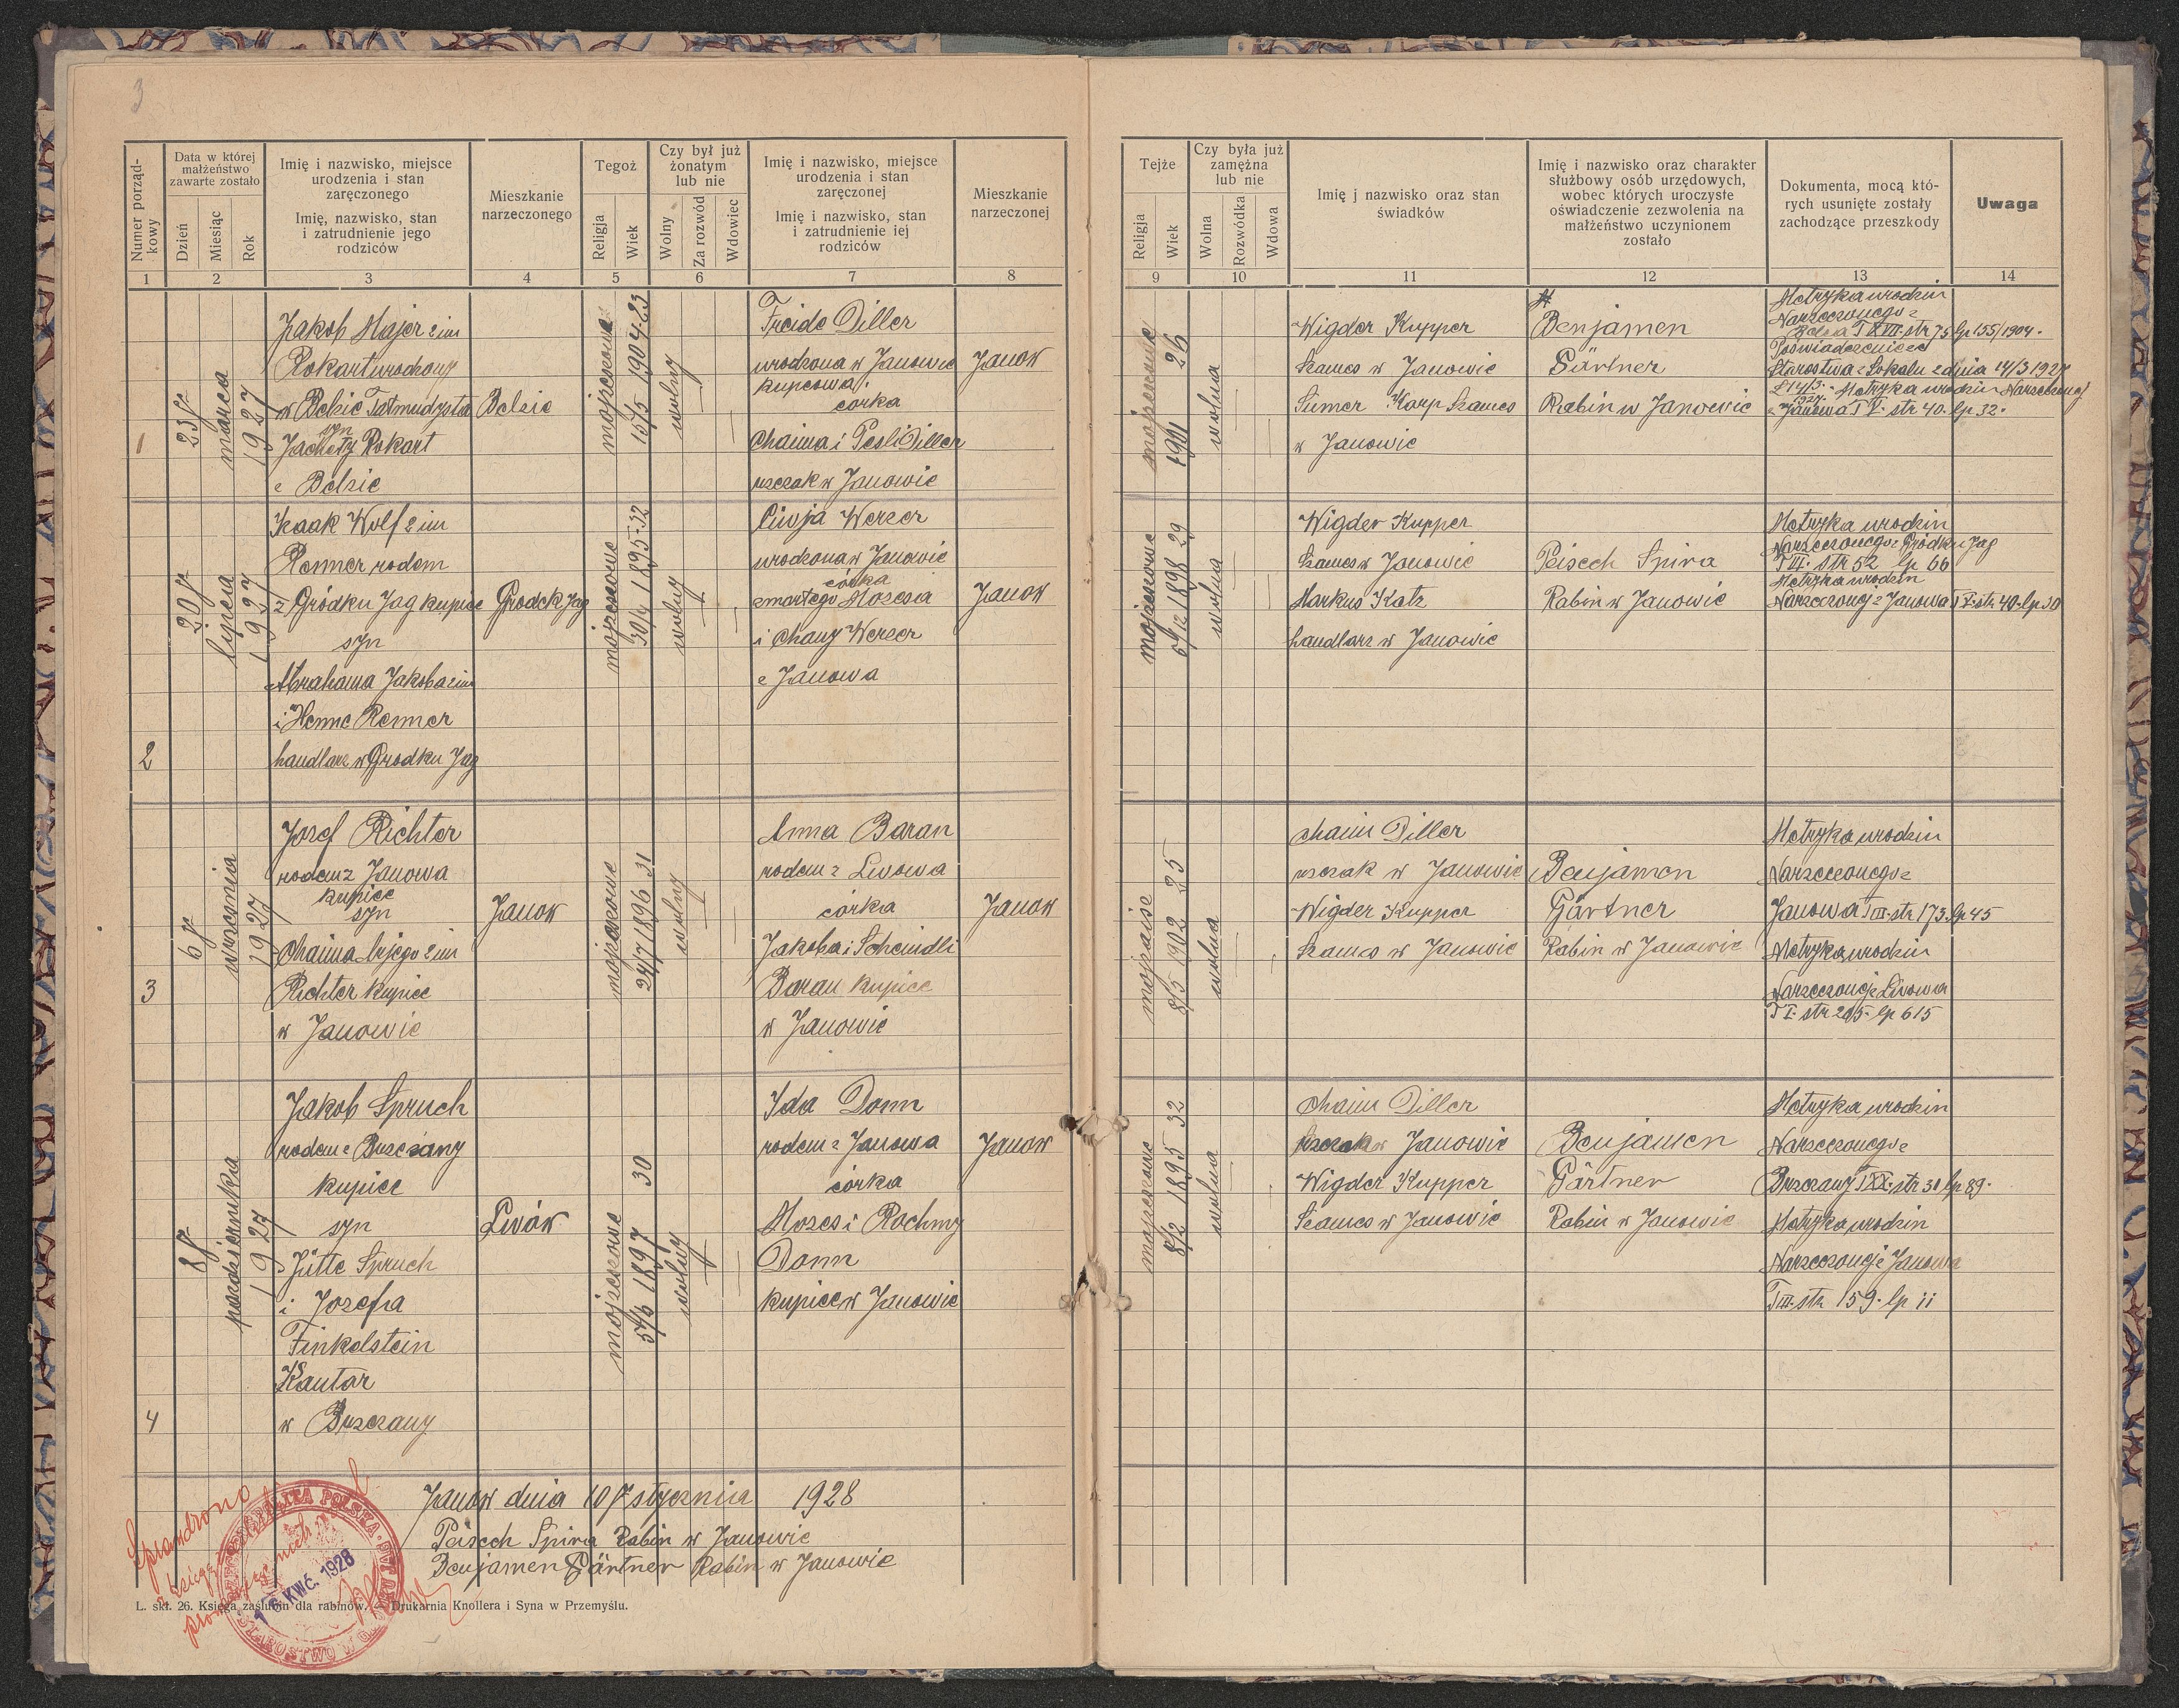 3
Numer porząd-
kowy
Data w której
małżeństwo
zawarte zostało
Dzień
Miesiąc
Rok
Imię i nazwisko, miejsce
urodzenia i stan
zaręczonego
Imię, nazwisko, stan
i zatrudnienie jego
rodziców
Mieszkanie
narzeczonego
Tegoż
Religja
Wiek
Czy był już
żonatym
lub nie
Wolny
Za rozwód
Wdowiec
Imię i nazwisko, miejsce
urodzenia i stan
zaręczonej
Imię i nazwisko, stan
i zatrudnienie iej
rodziców
Mieszkanie
narzeczonej
1 2 3 4 5 6 7 8
1
23 go
marca
1927
Jakob Majer 2 im
Rokart urodzony
w Bełzie Talmudysta
syn
Jachety Rokart
z Bełzie
Belzie
mojżeszowe
15/5 1904 23
wolny
Freide Diller
urodzona w Janowie
kupcowa
córka
Chaima i Pesli Diller
rzezak w Janowie
Janow
2
20 go
lipcia
1927
Izaak Wolf 2 im
Renner rodem
z Gródku Jag kupiec
syn
Abrahama Jakoba 2 im
i Henne Renner
handlarz w Grodku Jag
Grodek Jag
mojżeszowe
30/4 1895 32
wolny
Ciwja Werzer
urodzona w Janowie
córka
zmartego Mozesa
i Chany Werzer
z Janowa
Janow
3
6 go
wrzesnia
1927
Jozef Richter
rodem z Janowa
kupiec
syn
Chaima 2 im
Richter kupiec
w Janowie
Janow
24/7 1896 31
wolny
Anna Baran
rodem z Lwowa
córka
Jakoba i Scheindli
Baran kupiec
w Janowie
Janow
4
8 go
pazdziernika
1927
Jakob Spruch
rodem z Brzeżany
kupiec
syn
Jütte Spruch
i Jozefa
Finkelstein
Kantar
w Brzezany
Lwów
mojzeszowe
5/6 1897 30
wolny
Ida Donn
rodem z Janowa
córka
Mozes i Rochmy
Donn
kupiec w Janowie
Janow
Janow dnia 10 go stycznia 1928
Peisech Spira Rabin w Janowie
Benjamen Gärtner Rabin w Janowie
Sprawdzono
KWC. 1928
L. skł. 26. Księga zaślubin dla rabinów. — Drukarnia Knollera i Syna w Przemyślu.
Tejże
Religja
Wiek
Czy była już
zamężna
lub nie
Wolna
Rozwódka
Wdowa
Imię j nazwisko oraz stan
świadków
Imię i nazwisko oraz charakter
służbowy osób urzędowych,
wobec których uroczyste
oświadczenie zezwolenia na
małżeństwo uczynionem
zostało
Dokumenta, mocą któ-
rych usunięte zostały
zachodzące przeszkody
Uwaga
9 10 11 12 13 14
mojzeszowe
1901 26
wolna
Wigder Kupper
Szames w Janowie
Sumer Karp Szames
w Janowie
Benjamen
Gärtner
Rabin w Janowie
Metryka urodzin
Narzeczonego z
Belza T XVII. str 75 lp 155/1904.
Poswiadczenie
Starostwa z Sokalu z dnia 14/3 1927
Metryka urodzin Narzeczonej
z Janowa T V. str 40. lp 32.
mojzeszowe
5/12 1898 29
wolna
Wigder Kupper
Szames w Janowie
Markus Katz
handlarz w Janowie
Peisech Spira
Rabin w Janowie
Metryka urodzin
Narzeczonego z Gródku Jag
T III. str 52 lp 66
Metryka urodzin
Narzeczony z Janowa T V. str 40. lp 30
8/5 1902 25
wolna
Chaim Diller
rzezak w Janowie
Wigder Kupper
Szames w Janowie
Benjamen
Gärtner
Rabin w Janowie
Metryka urodzin
Narzeczonego z
Janowa T III. str 173. lp 45
Metryka urodzin
Narzeczonej z Lwowa
T I. str 205. lp 615
mojzeszowe
8/2 1895 32
wolna
Chaim Diller
rzezak w Janowie
Wigder Kupper
Szames w Janowie
Benjamen
Gärtner
Rabin w Janowie
Metryka urodzin
Narzeczonego z
Brzezany T XX. str 30 lp 89.
Metryka urodzin
Narzeczonej z Janowa
T III. str 159. lp 11